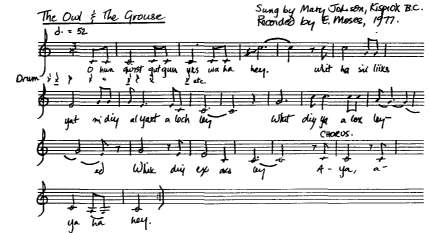 The Owl & The Grouse
Sung by Mary Johnson, Kispiox B.C.
Recorded by E. Moser, 1977.
♩. = 52
O hun qutst qut quu yks wa ha hey. whit ha sii liiks
Drum etc.
yat ni diy al yaxt a loch ley What diy ya a lox ley—
CHORUS.
ed Whik diy ex axs ley A- ya, a-
ya ha hey.